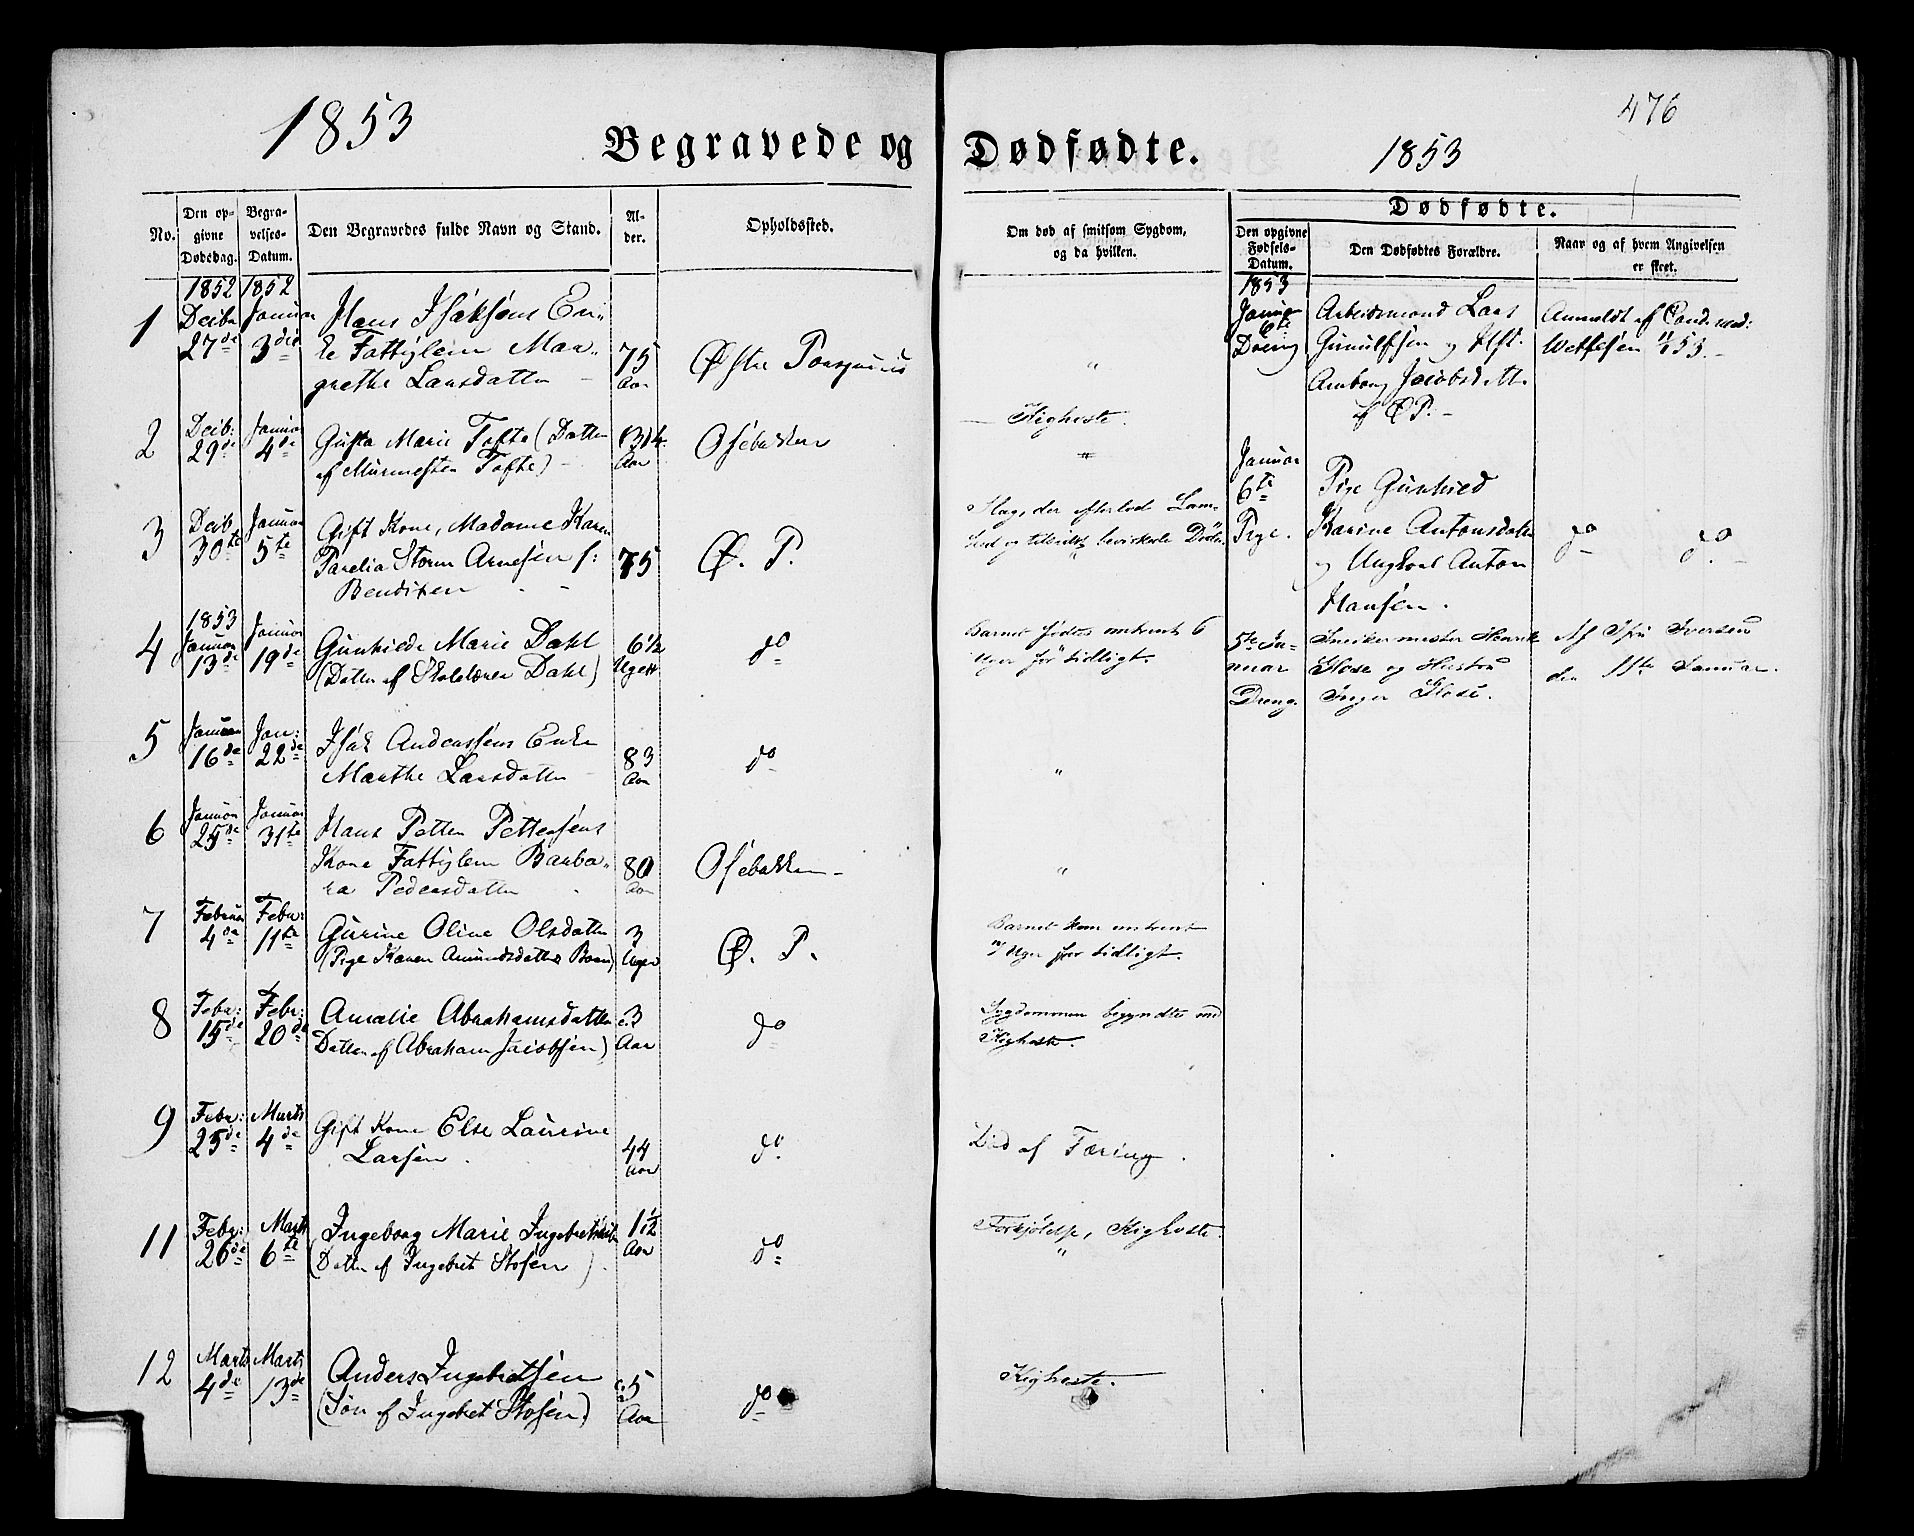 1853
476
Begravede og Dødfødte.
1853
No.
Den opgivne Dødsdag.
Begravelses-Datum.
Den Begravedes fulde Navn og Stand.
Alder.
Opholdssted.
Om død af smitsom Sygdom, og da hvilken.
Dødfødte.
Den opgivne Fødsels-Datum.
Den Dødfødtes Forældre.
Naar og af hvem Angivelsen er skeet.
1852
1852
1
Decbr 27de
Januar 3die
Hans Isaksens En-
ke Fattiglem Mar-
grethe Larsdatter
75 Aar
Østre Porsgrund
"
2
Decb: 29de
Januar 4de
Gusta Marie Tofte (Datter
af Murmester Tofte)
Aar
Osebakken
Kighoste.
"
3
Decb. 30te
Januar 5te
Gift Kone, Madame Karen
Parelia Storm Arnesen f:
Bendixen
75
Ø. P.
Slag, der efterlod Lam-
hed og tilsidst bevirkede Døden
1853
4
Januar 13de
Januar 19de
Gunhilde Marie Dahl
(Datter af Skolelærer Dahl)
6 1/2 Uger
do
Barnet fødtes omtrent 6
Uger for tidligt.
5
Januar 16de
Jan: 22de
Isak Anderssens Enke
Marthe Larsdatter
83 Aar
do
"
6
Januar 25de
Januar 31te
Hans Petter Pettersens
Kone Fattiglem Barba-
ra Pedersdatter
80 Aar
Osebakken
"
7
Februar 4de
Febr: 11te
Gurine Oline Olsdatter
(Pige Karen Amundsdatters Barn)
3 Uger
Ø. P.
Barnet kom omtrent
Uger for tidligt.
8
Febr: 15de
Febr: 20de
Amalie Abrahamsdatter
Datter af Abraham Jacobsen)
3 Aar
do
Sygdommen begyndte med
Kighoste.
9
Febr: 25de
Marts 4de
Gift Kone Else Laurine
Larsen.
44 Aar
do
Død af Tæring.
11
Febr: 26de
Marts 6te
Ingeborg Marie
(Datter af Ingebret Stosen)
1 1/2 Aar
do
Forkjølelse, Kighoste.
"
12
Marts 4de
Marts 13de
Anders Ingebretsen
(Søn af Ingebret Stosen)
5 Aar
do
Kighoste.
1853
Januar 6te
Dreng
Arbeidsmand Lars
Gunulfsen og Hst.
Anborg Jacobsdatter
af Ø P.
Anmeldt af Cand. med:
53.
Januar 6te
Pige.
Pige Gunhild
Karine Antonsdatter
og Ungkarl Anton
Hansen.
do do.
5te Ja-
nuar
Dreng.
Snekermester Henrik
og Hustru
Inger
Af Iversen
den 11te Januar.